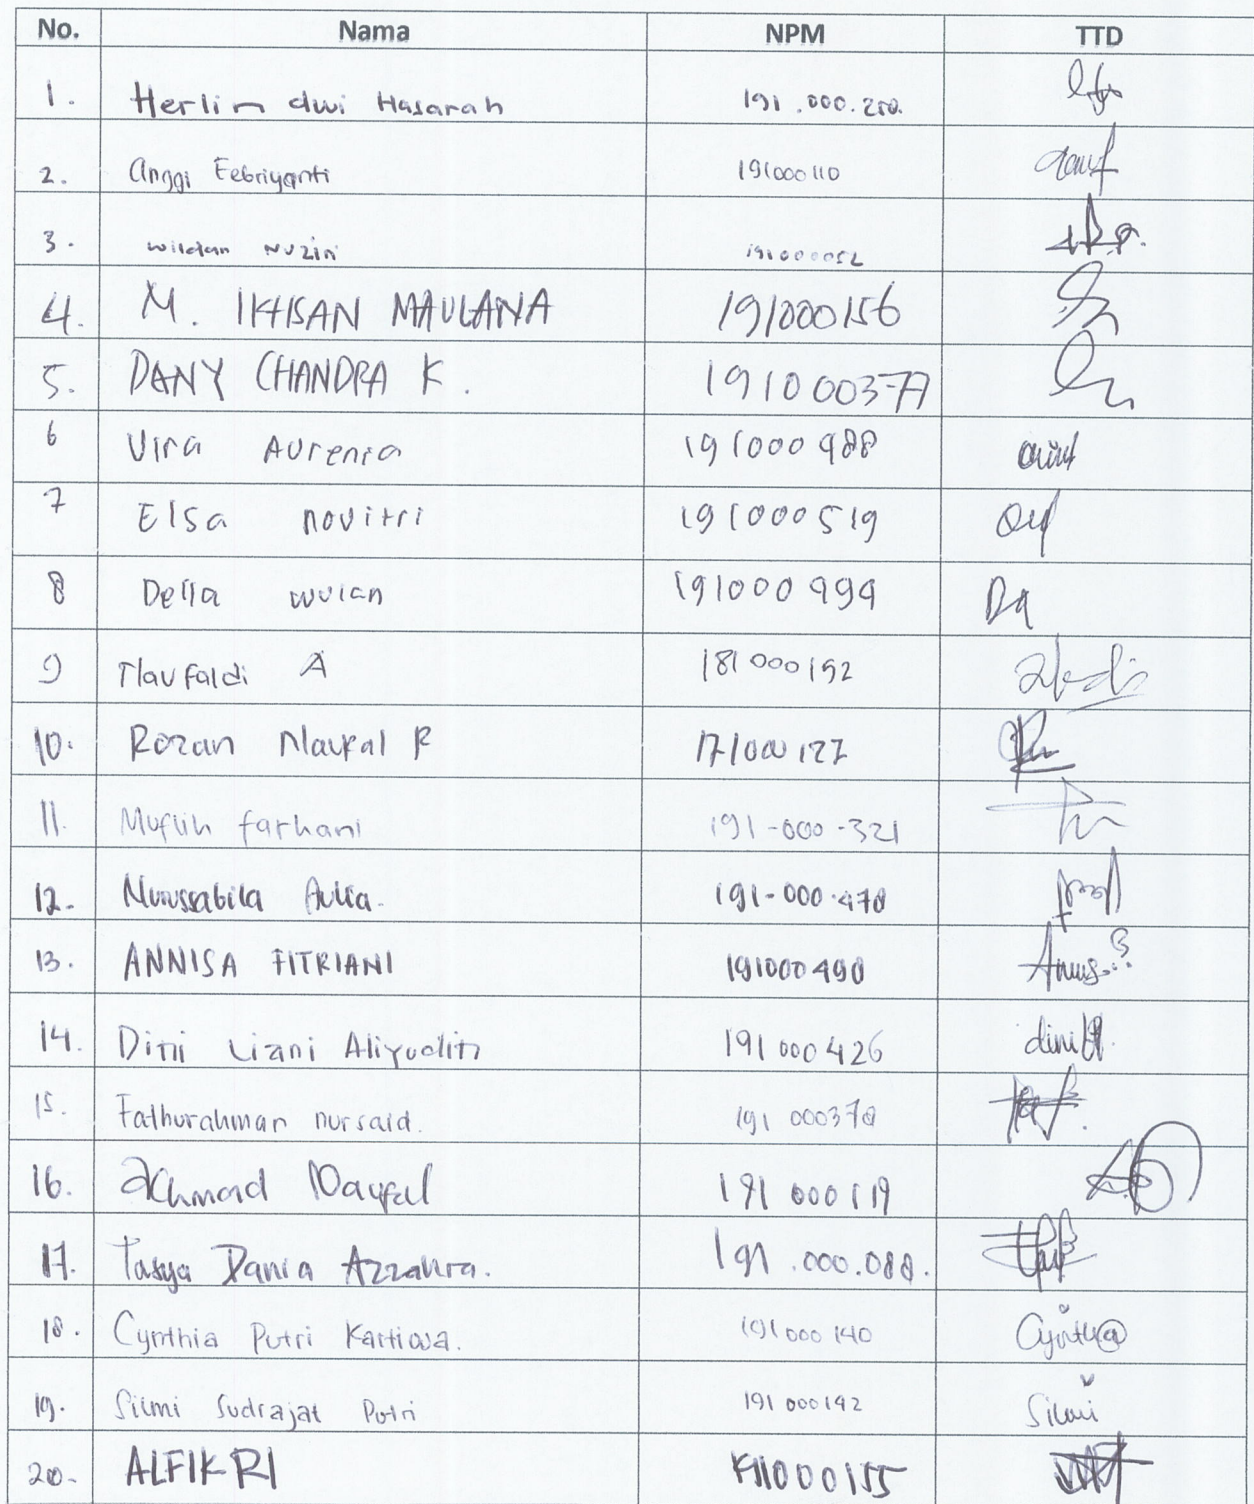 No. Nama NPM TTD
1. Herlin dwi Hasarah 191.000.250.
2. Anggi Febriyanti 191000110
3. Wildan Nuzin 191000052
4. M. IKHSAN MAULANA 191000156
5. DANY CHANDRA K. 191000377
6 Vira Aurenia 191000988
7 Elsa novitri 191000519
8 Della wulan 191000999
9 Naufaldi A 181000192
10. Rozan Naufal R 171000127
11. Muflih farhani 191-000-321
12. Nurussabila Aulia. 191-000.478
13. ANNISA FITRIANI 191000490
14. Dini Liani Aliyudin 191000426 dini
15. Fathurahman nursaid. 191 000378
16. Achmad Naufal 191 000119
17. Tasya Dania Azzahra. 191.000.088.
18. Cynthia Putri Kartiwa. 191000140 Cynthia
19. Silmi Sudrajat Putri 191000142 Silmi
20. ALFIKRI 000155